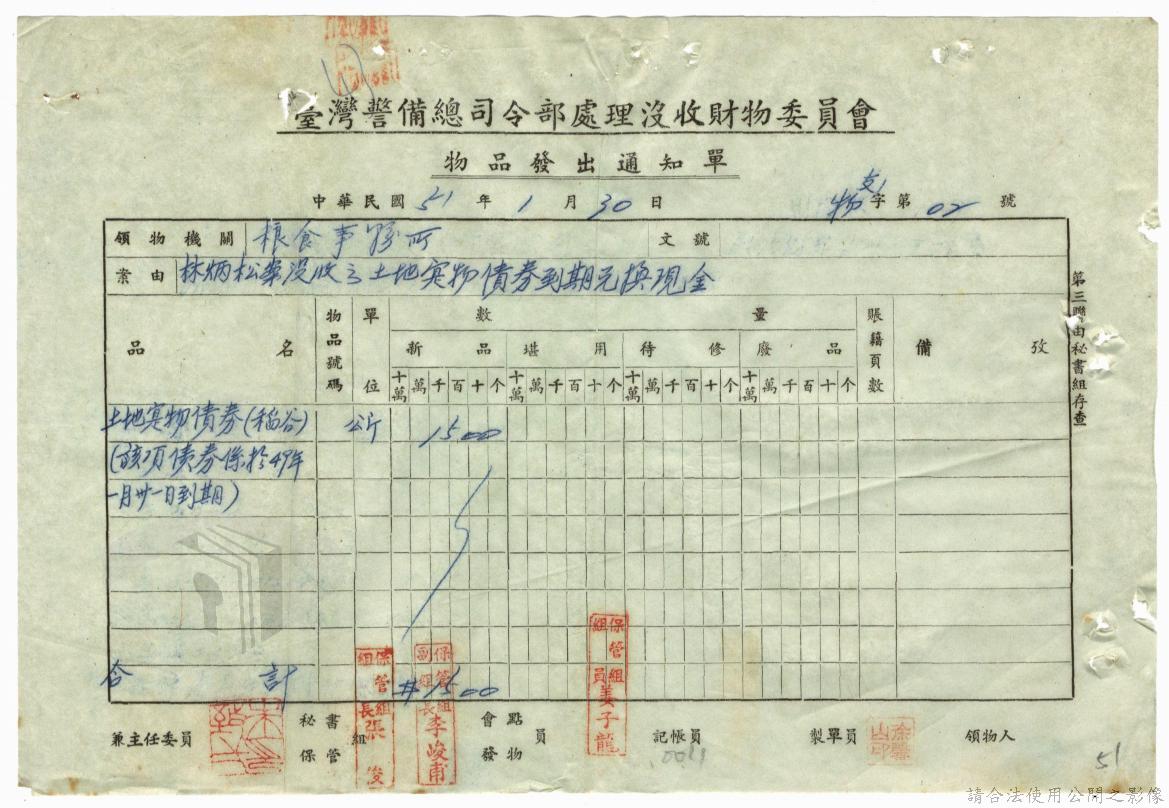 臺灣警備總司令部處理沒收財物委員會
物品發出通知單
中華民國51年1月30日
物支字第02號
領物機關 粮食事務所 文號
案由 林炳松案沒收之土地实物債券到期兑換現金
品名 物品號碼 單位 數量 賬籍頁數 備攷
新品 堪用 待修 廢品
十萬 萬 千 百 十 个 十萬 萬 千 百 十 个 十萬 萬 千 百 十 个 十萬 萬 千 百 十 个
土地实物債券(稻谷) 公斤 1500
(該項債券係於49年
一月卅一日到期)
合計 #1500
第三聯由秘書組存查
保管組組長張俊
保管組副組長李峻甫
保管組組員姜子龍
兼主任委員 秘書 保管 組 會點 發物 員 記帳員 製單員 領物人
0011
51
請合法使用公開之影像